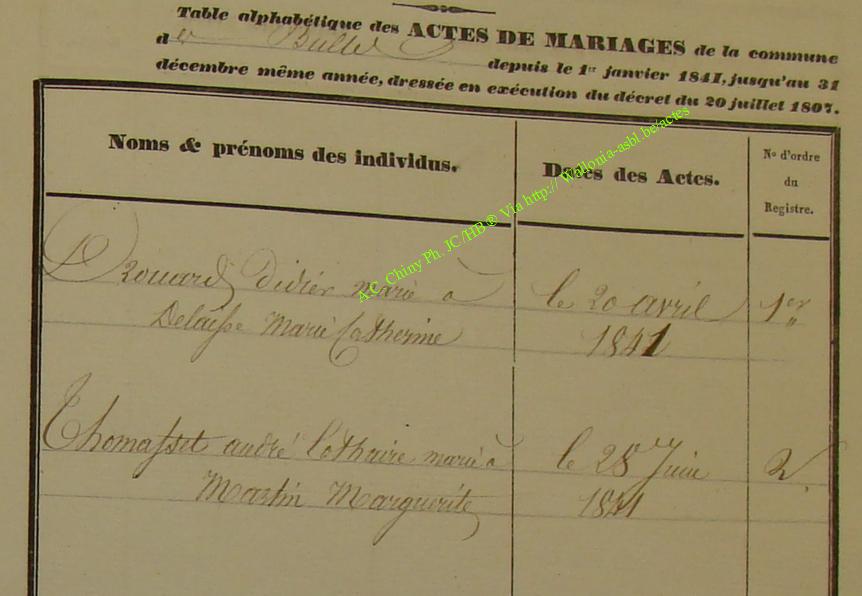 Table alphabétique des ACTES DE MARIAGES de la commune
de Bulles depuis le 1er janvier 1841, jusqu'au 31
décembre même année, dressée en exécution du décret du 20 juillet 1807.
Noms & prénoms des individus.
Dates des Actes.
N° d'ordre
du
Registre.
Drouard didier marié à
le 20 avril
1er
Delaisse Marie Catherine
1841
Thomasset andré Lothaire marié à
le 28 Juin
2.
Martin Marguerite
1841
A.C. Chiny Ph. JC /HB® Via http:// Wallonia-asbl.be/actes